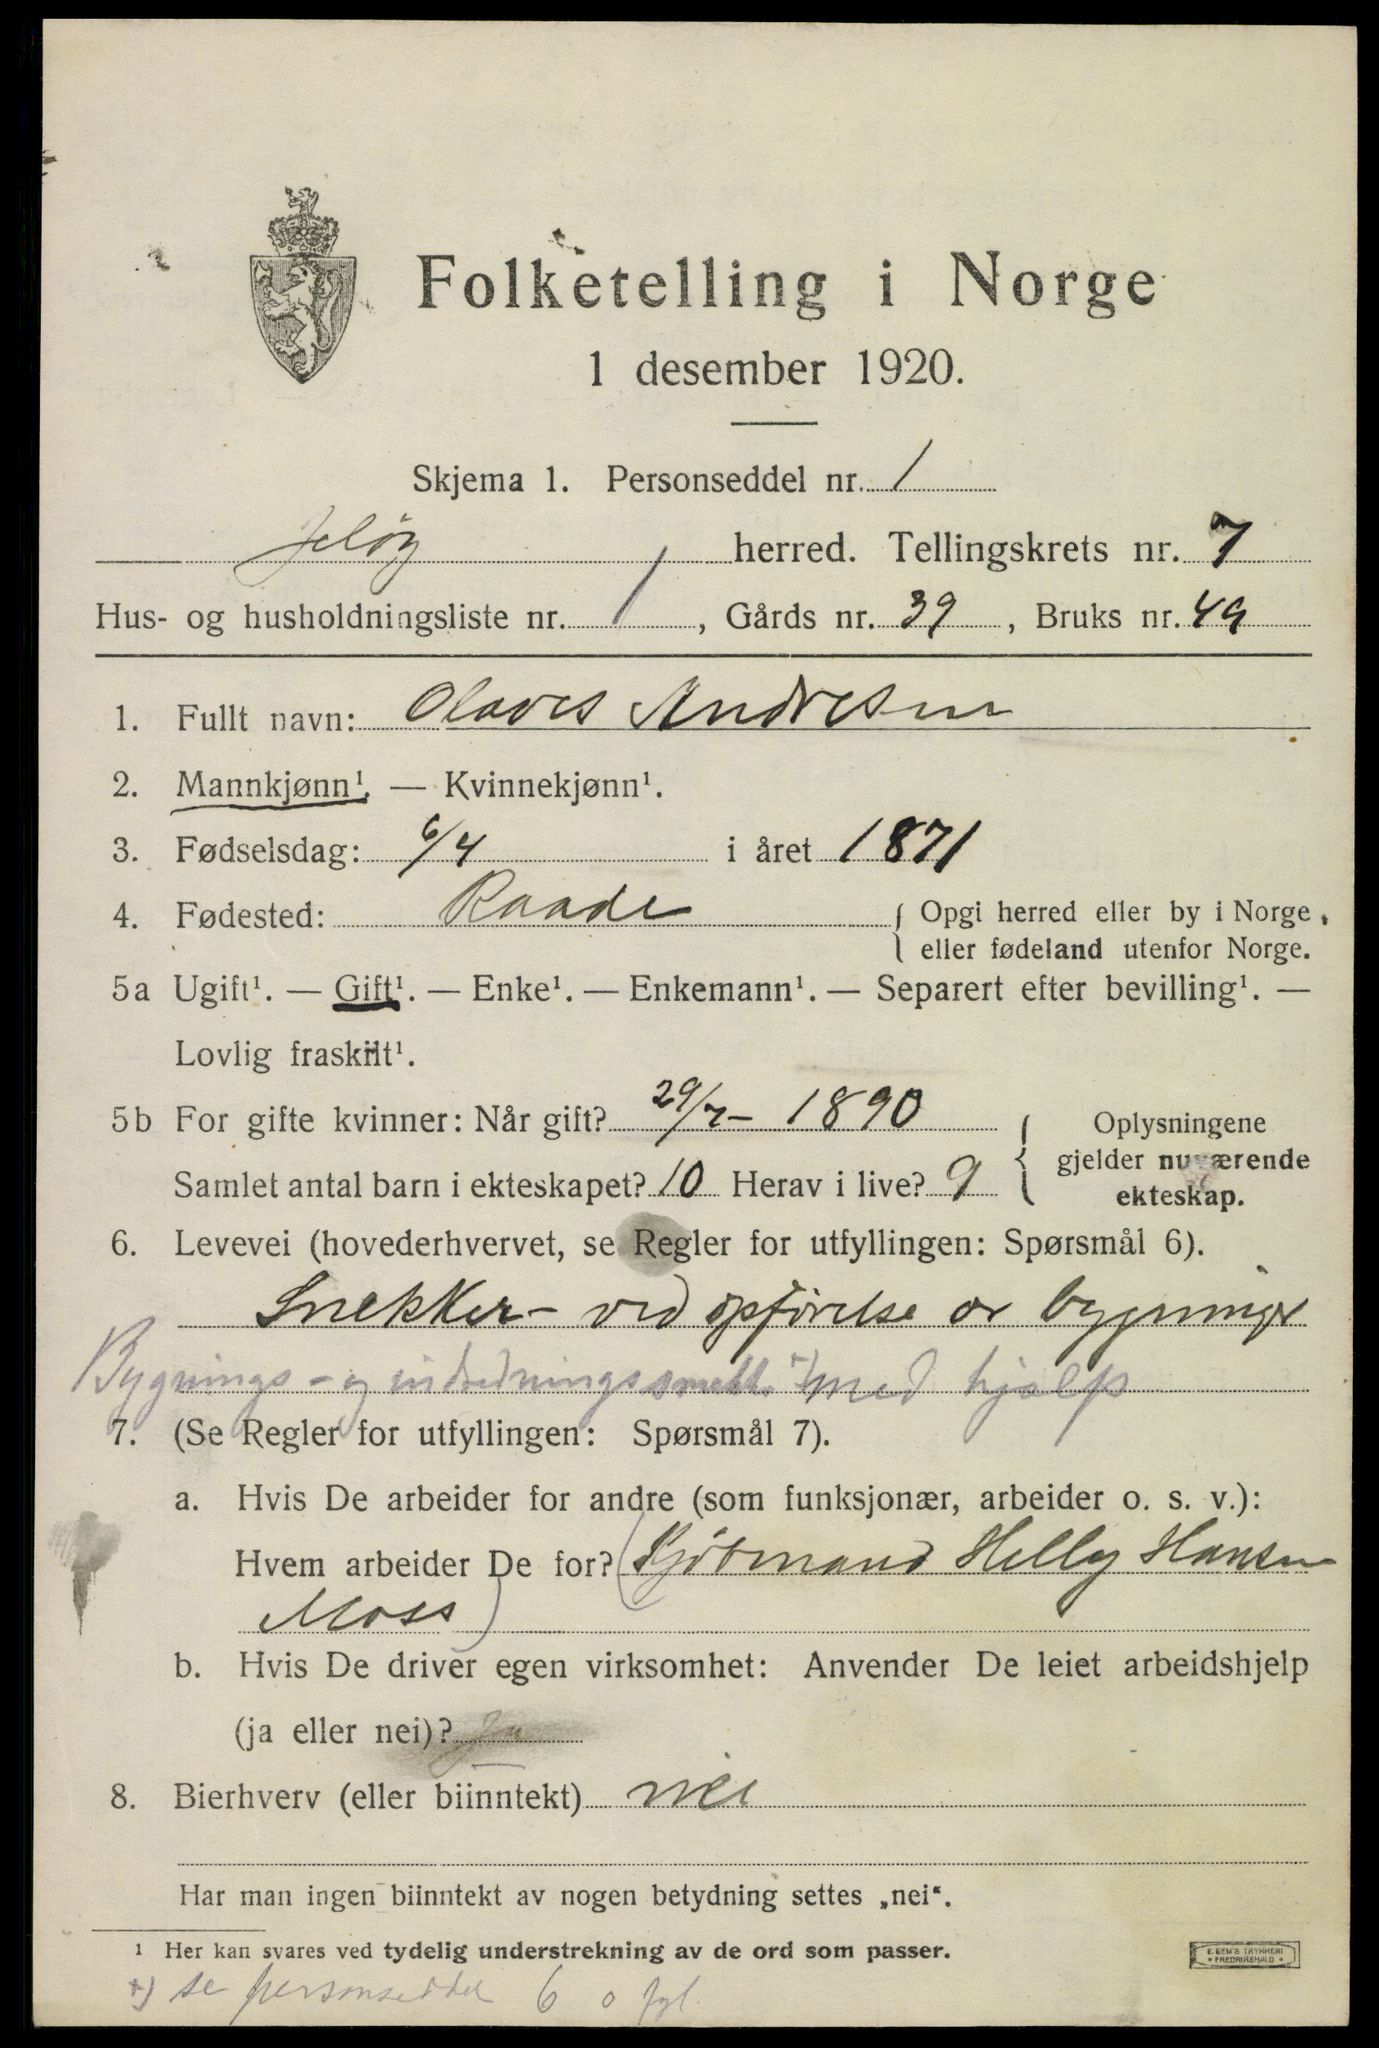 Folketelling i Norge
1 desember 1920.
Skjema 1. Personseddel nr. 1
Jeløy herred. Tellingskrets nr. 7
Hus- og husholdningsliste nr. 1, Gårds nr. 39, Bruks nr. 49
1. Fullt navn: Olaves Andresen
2. Mannkjønn¹. — Kvinnekjønn¹.
3. Fødselsdag: 6/4 i året 1871
4. Fødested: Raade { Opgi herred eller by i Norge,
eller fødeland utenfor Norge.
5a Ugift¹. — Gift¹. — Enke¹. — Enkemann¹. — Separert efter bevilling¹. —
Lovlig fraskilt¹.
5b For gifte kvinner: Når gift? 29/7 - 1890 { Oplysningene
gjelder nuværende
Samlet antal barn i ekteskapet? 10 Herav i live? 9
ekteskap.
6. Levevei (hovederhvervet, se Regler for utfyllingen: Spørsmål 6).
Snekker - ved opførelse av bygninger
Bygnings- og indredningssnekk. +) med hjælp
7. (Se Regler for utfyllingen: Spørsmål 7).
a. Hvis De arbeider for andre (som funksjonær, arbeider o. s. v.):
Hvem arbeider De for? (Kjøbmand Helly Hansen
Moss)
b. Hvis De driver egen virksomhet: Anvender De leiet arbeidshjelp
(ja eller nei)? Ja
8. Bierhverv (eller biinntekt) nei
Har man ingen biinntekt av nogen betydning settes „nei“.
¹ Her kan svares ved tydelig understrekning av de ord som passer.
E. SEM'S TRYKKERI
• FREDRIKSHALD •
+) se personseddel 6 o fgl.